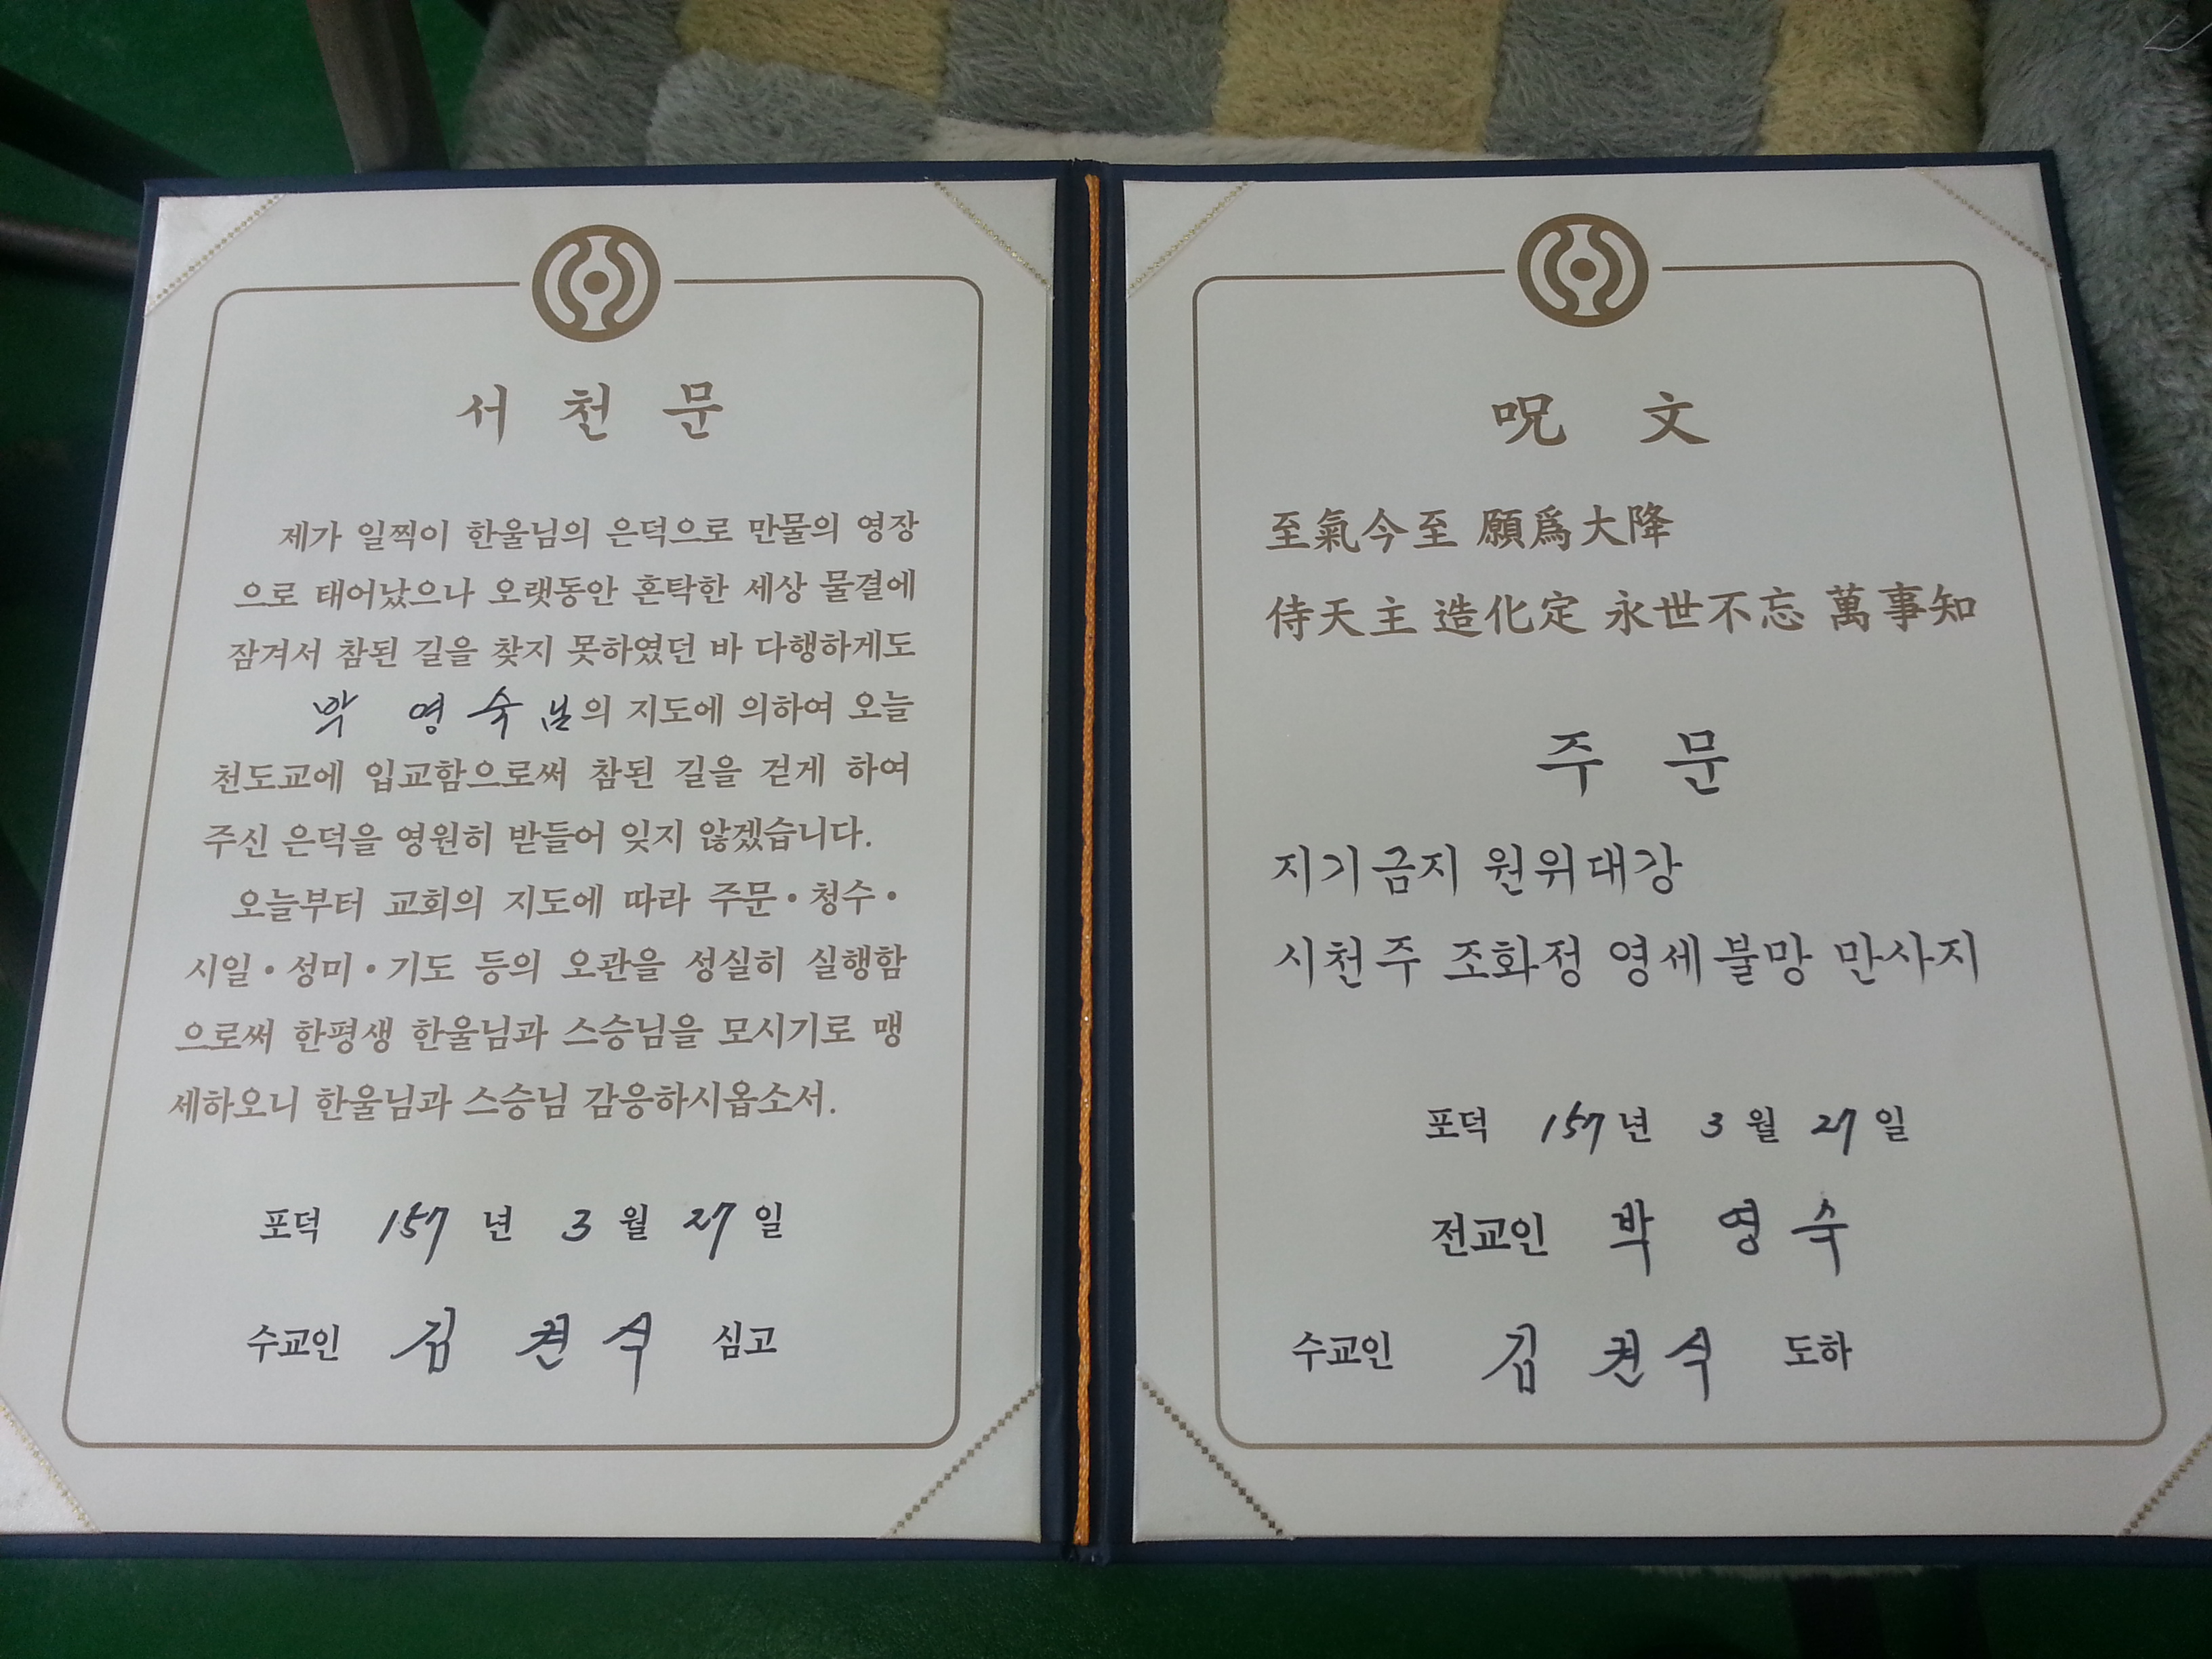 서 천 문
제가 일찍이 한울님의 은덕으로 만물의 영장
으로 태어났으나 오랫동안 혼탁한 세상 물결에
잠겨서 참된 길을 찾지 못하였던 바 다행하게도
박 영 수 의 지도에 의하여 오늘
천도교에 입교함으로써 참된 길을 걷게 하여
주신 은덕을 영원히 받들어 잊지 않겠습니다.
오늘부터 교회의 지도에 따라 주문·청수·
시일·성미·기도 등의 오관을 성실히 실행함
으로써 한평생 한울님과 스승님을 모시기로 맹
세하오니 한울님과 스승님 감응하시옵소서.
포덕 157 년 3 월 27 일
수교인 김 심고
呪 文
至氣今至 願爲大降
侍天主 造化定 永世不忘 萬事知
주 문
지기금지 원위대강
시천주 조화정 영세불망 만사지
포덕 157 년 3 월 27 일
전교인 박 영 수
수교인 김 도하